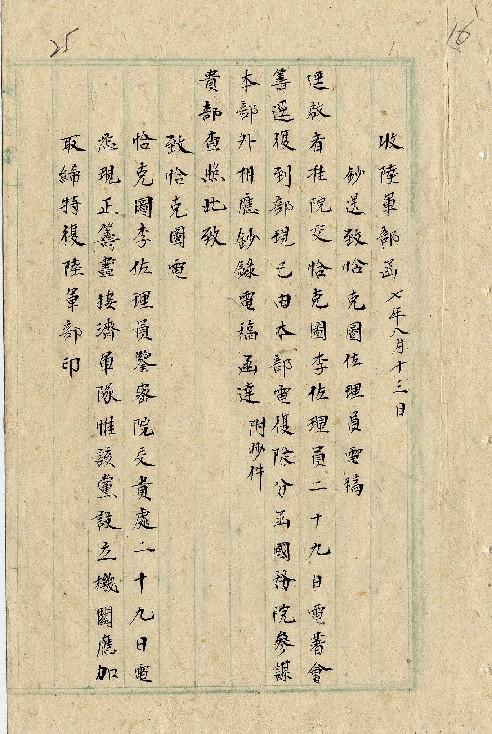 25
16
收陸軍部函 七年八月十三日
鈔送致恰克圖佐理員電稿
逕啟者准院交恰克圖李佐理員二十九日電著會
籌逕復到部現已由本部電復除分函國務院參謀
本部外相應鈔錄電稿函達 附抄件
貴部查照此致
致恰克圖電
恰克圖李佐理員鑒密院交貴處二十九日電
悉現正籌畫接濟軍隊惟該黨設立機關應加
取締特復陸軍部印